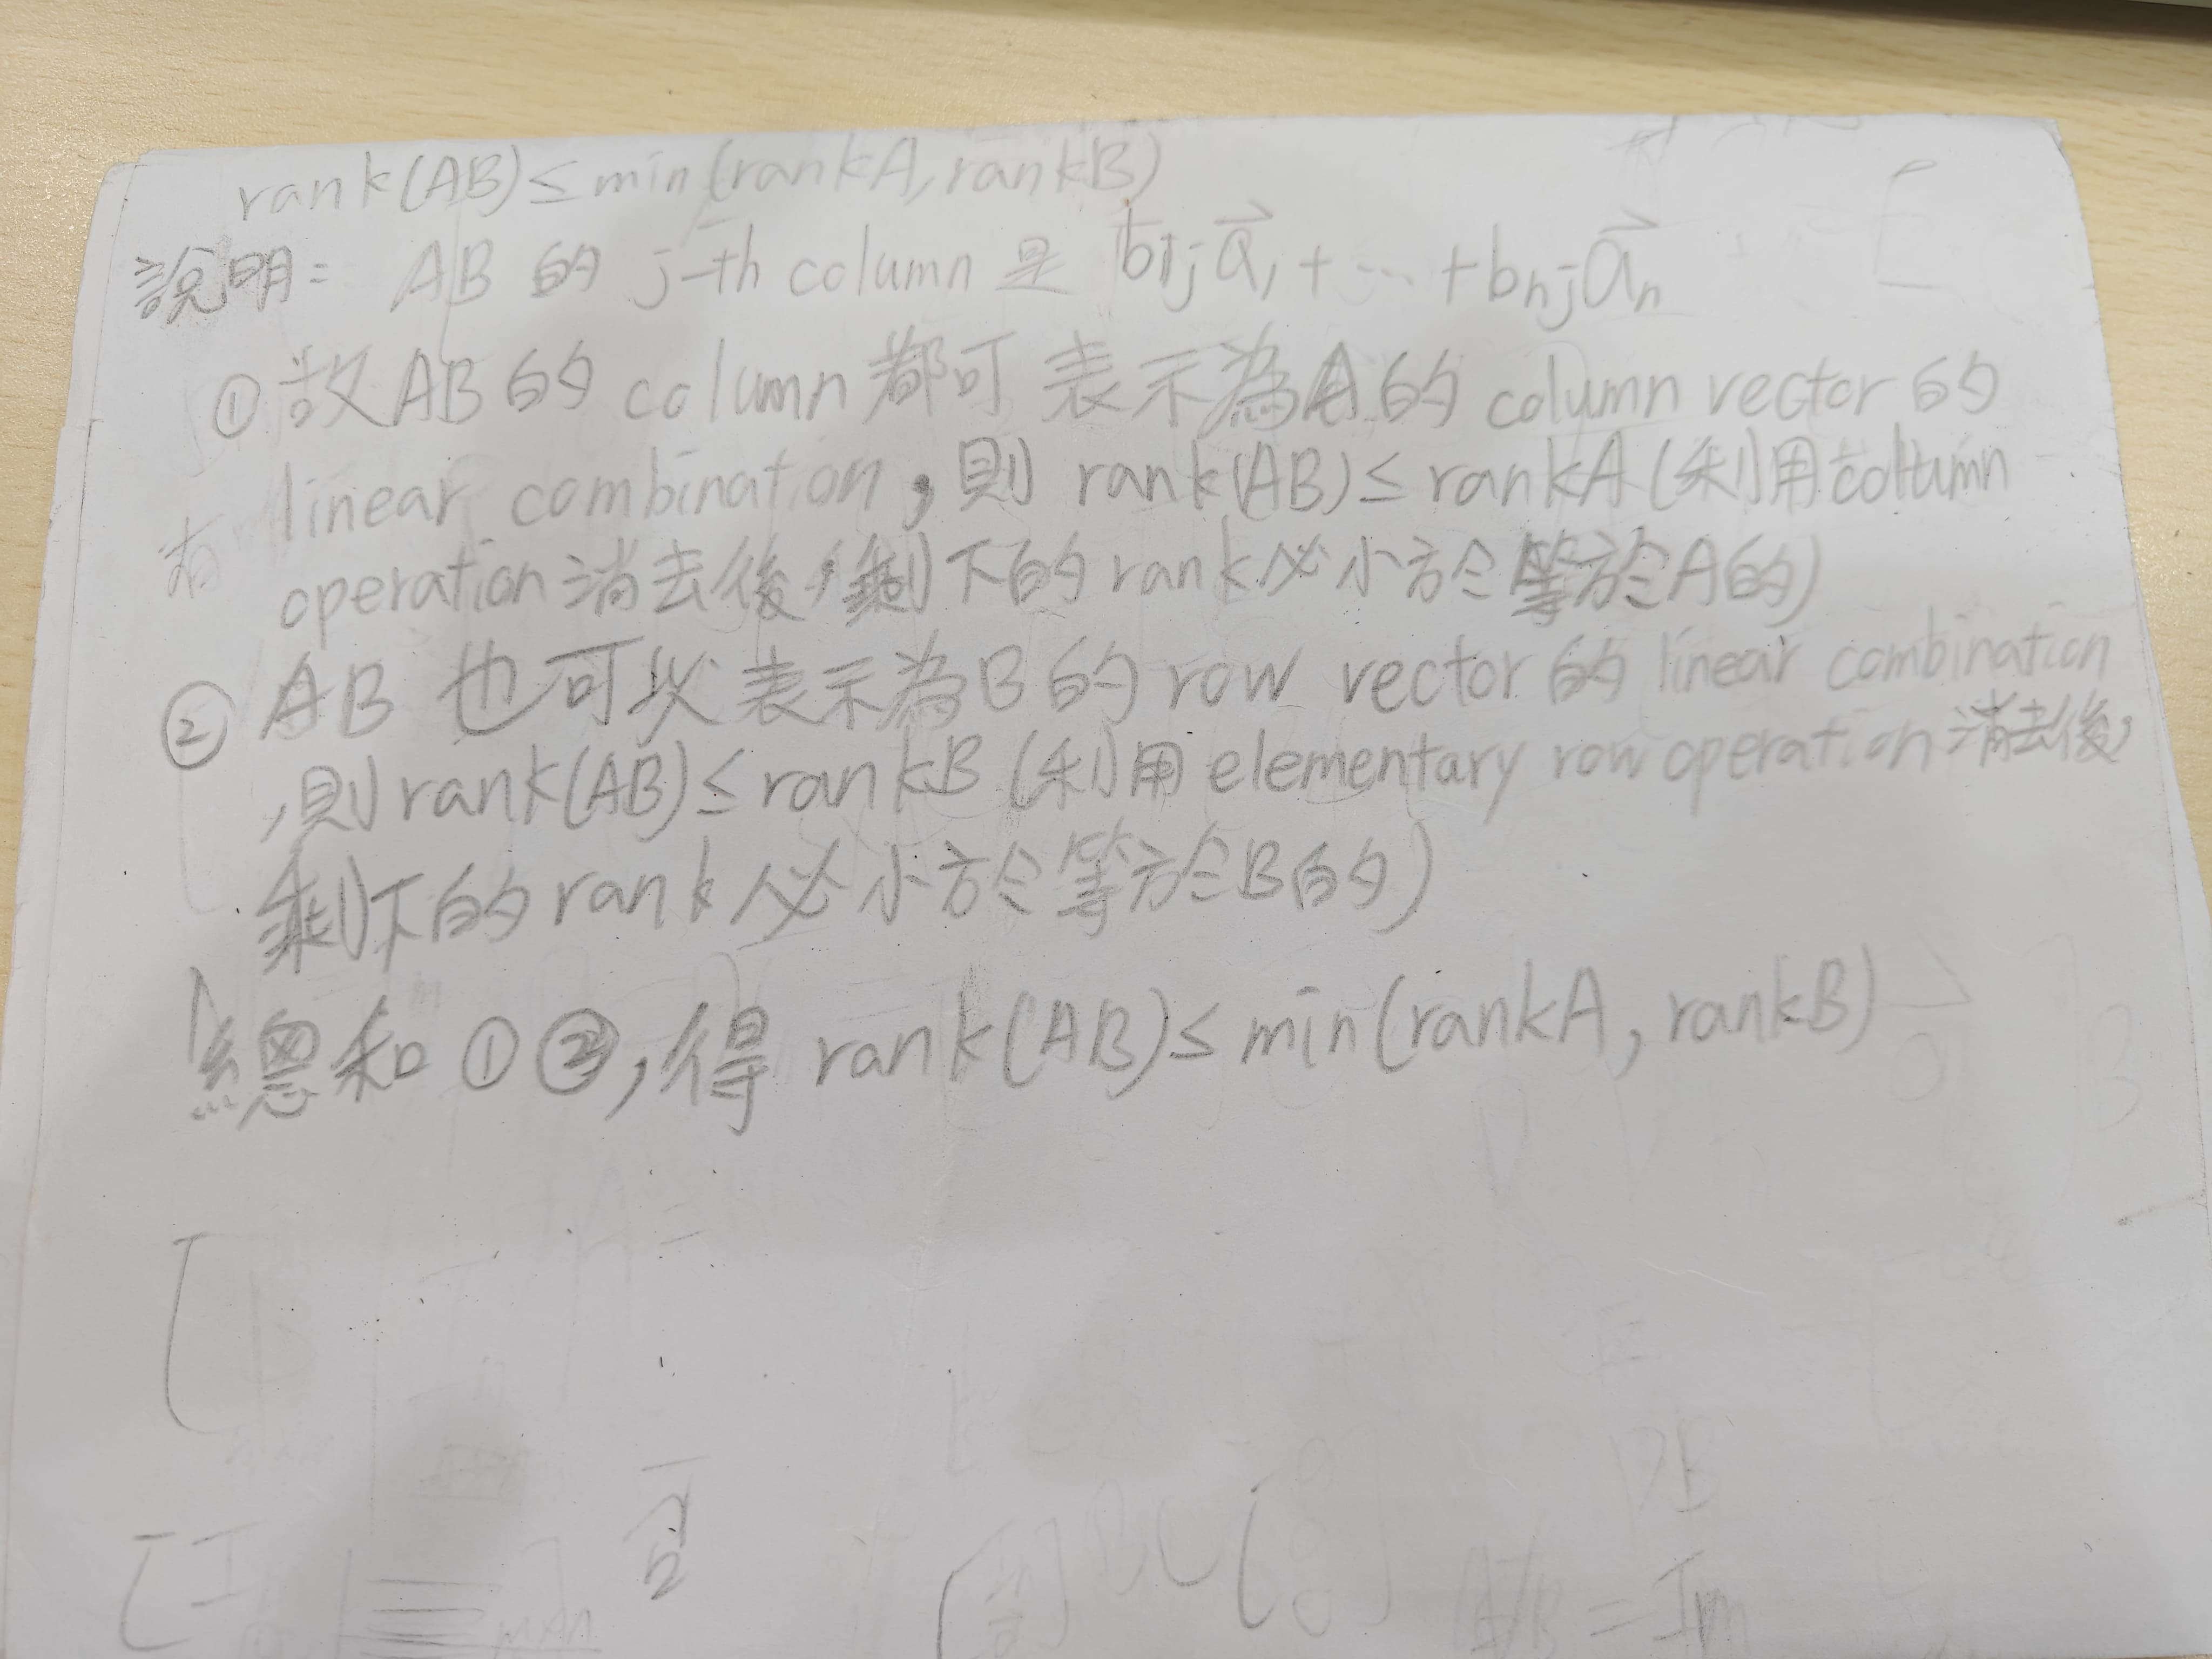 rank(AB)≤min(rankA,rankB)
說明= AB 的 j-th column 是 b1ja⃗1+…+bnja⃗n
①故AB的 column都可表示為A的 column vector的
linear combination,則 rank(AB)≤rankA(利用column
operation消去後,剩下的rank必小於等於A的)
②AB 也可以表示為B的row vector的linear combination
,則rank(AB)≤rankB(利用elementary row operation消去後,
剩下的rank必小於等於B的)
總和①②,得 rank(AB)≤min(rankA,rankB)
= Im